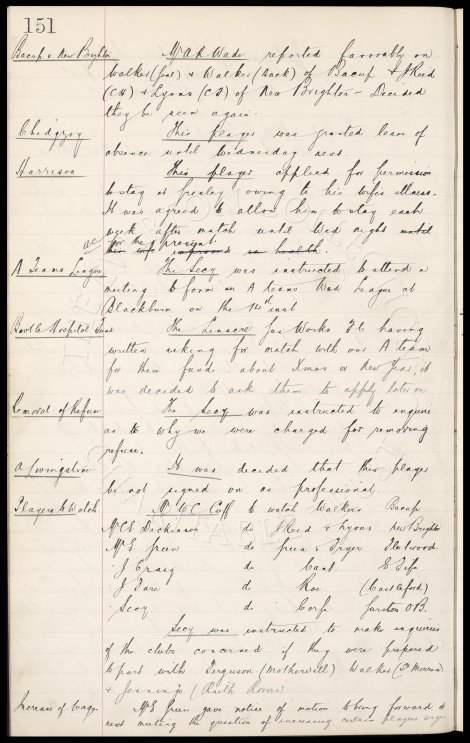 151
Bacup v New Brighton Mr A R Wade reported favorably on
Walker (goal) & Walker (back) of Bacup & J Reid
(CH) & Lyons (CF) of New Brighton - Decided
they be seen again.
Chedgzoy This player was granted leave of
absence until Wednesday next.
Harrison This player applied for permission
to stay at Grealey owing to his wifes illness.
It was agreed to allow him to stay each
week after match until Wed night until
for the present
his wife improved in health.
A Teams League The Secy was instructed to attend a
meeting to form an A teams Wed League at
Blackburn on the 14th inst
Bootle Hospital Fund The Linacre Gas Works FC having
written asking for match with our A team
for their funds about Xmas or New Year, it
was decided to ask them to apply later on
Removal of Refuse The Secy was instructed to enquire
as to why we were charged for removing
refuse.
A Livingstone It was decided that this player
be not signed on as professional.
Players to Watch Mr W C Cuff to watch Walkers Bacup
Mr C E Dickinson do J Reid & Lyons New Brighton
Mr E Green do Green & Pryer Fleetwood
J Craig do Cant E Fife
J Fare do Roe (Castleford)
Secy do Corfe Garston O.B.
Secy was instructed to make inquiries
of the clubs concerned if they were prepared
to part with Ferguson (Motherwell) Walker (St Mirren)
& Jennings (Raith Rovers)
Increase of Wages Mr E Green gave notice of motion to bring forward at
next meeting the question of increasing certain players wages